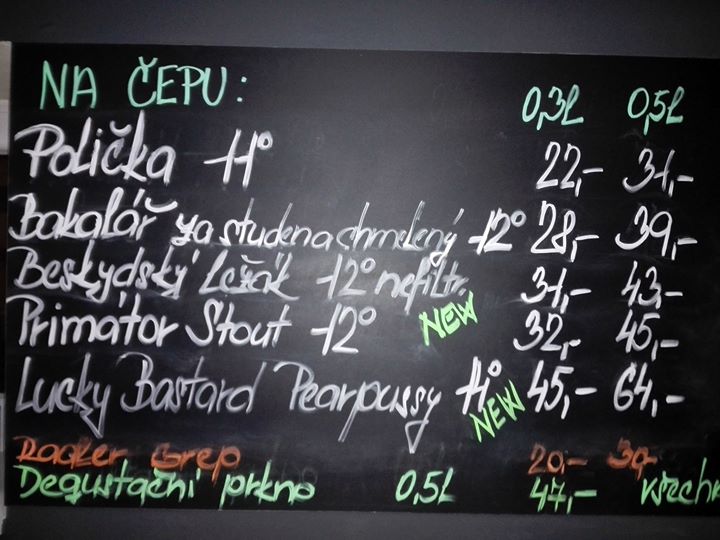 NA ČEPU: 0,3L 0,5L
Polička 11° 22,- 31,-
Bakalář za studena chmelený 12° 28,- 39,-
Beskydský Ležák 12° nefiltr. 31,- 43,-
Primátor Stout 12° NEW 32,- 45,-
Lucky Bastard Pearpussy 11° NEW 45,- 64,-
Grep 20,-
Degustační prkno 0,5L 47,-